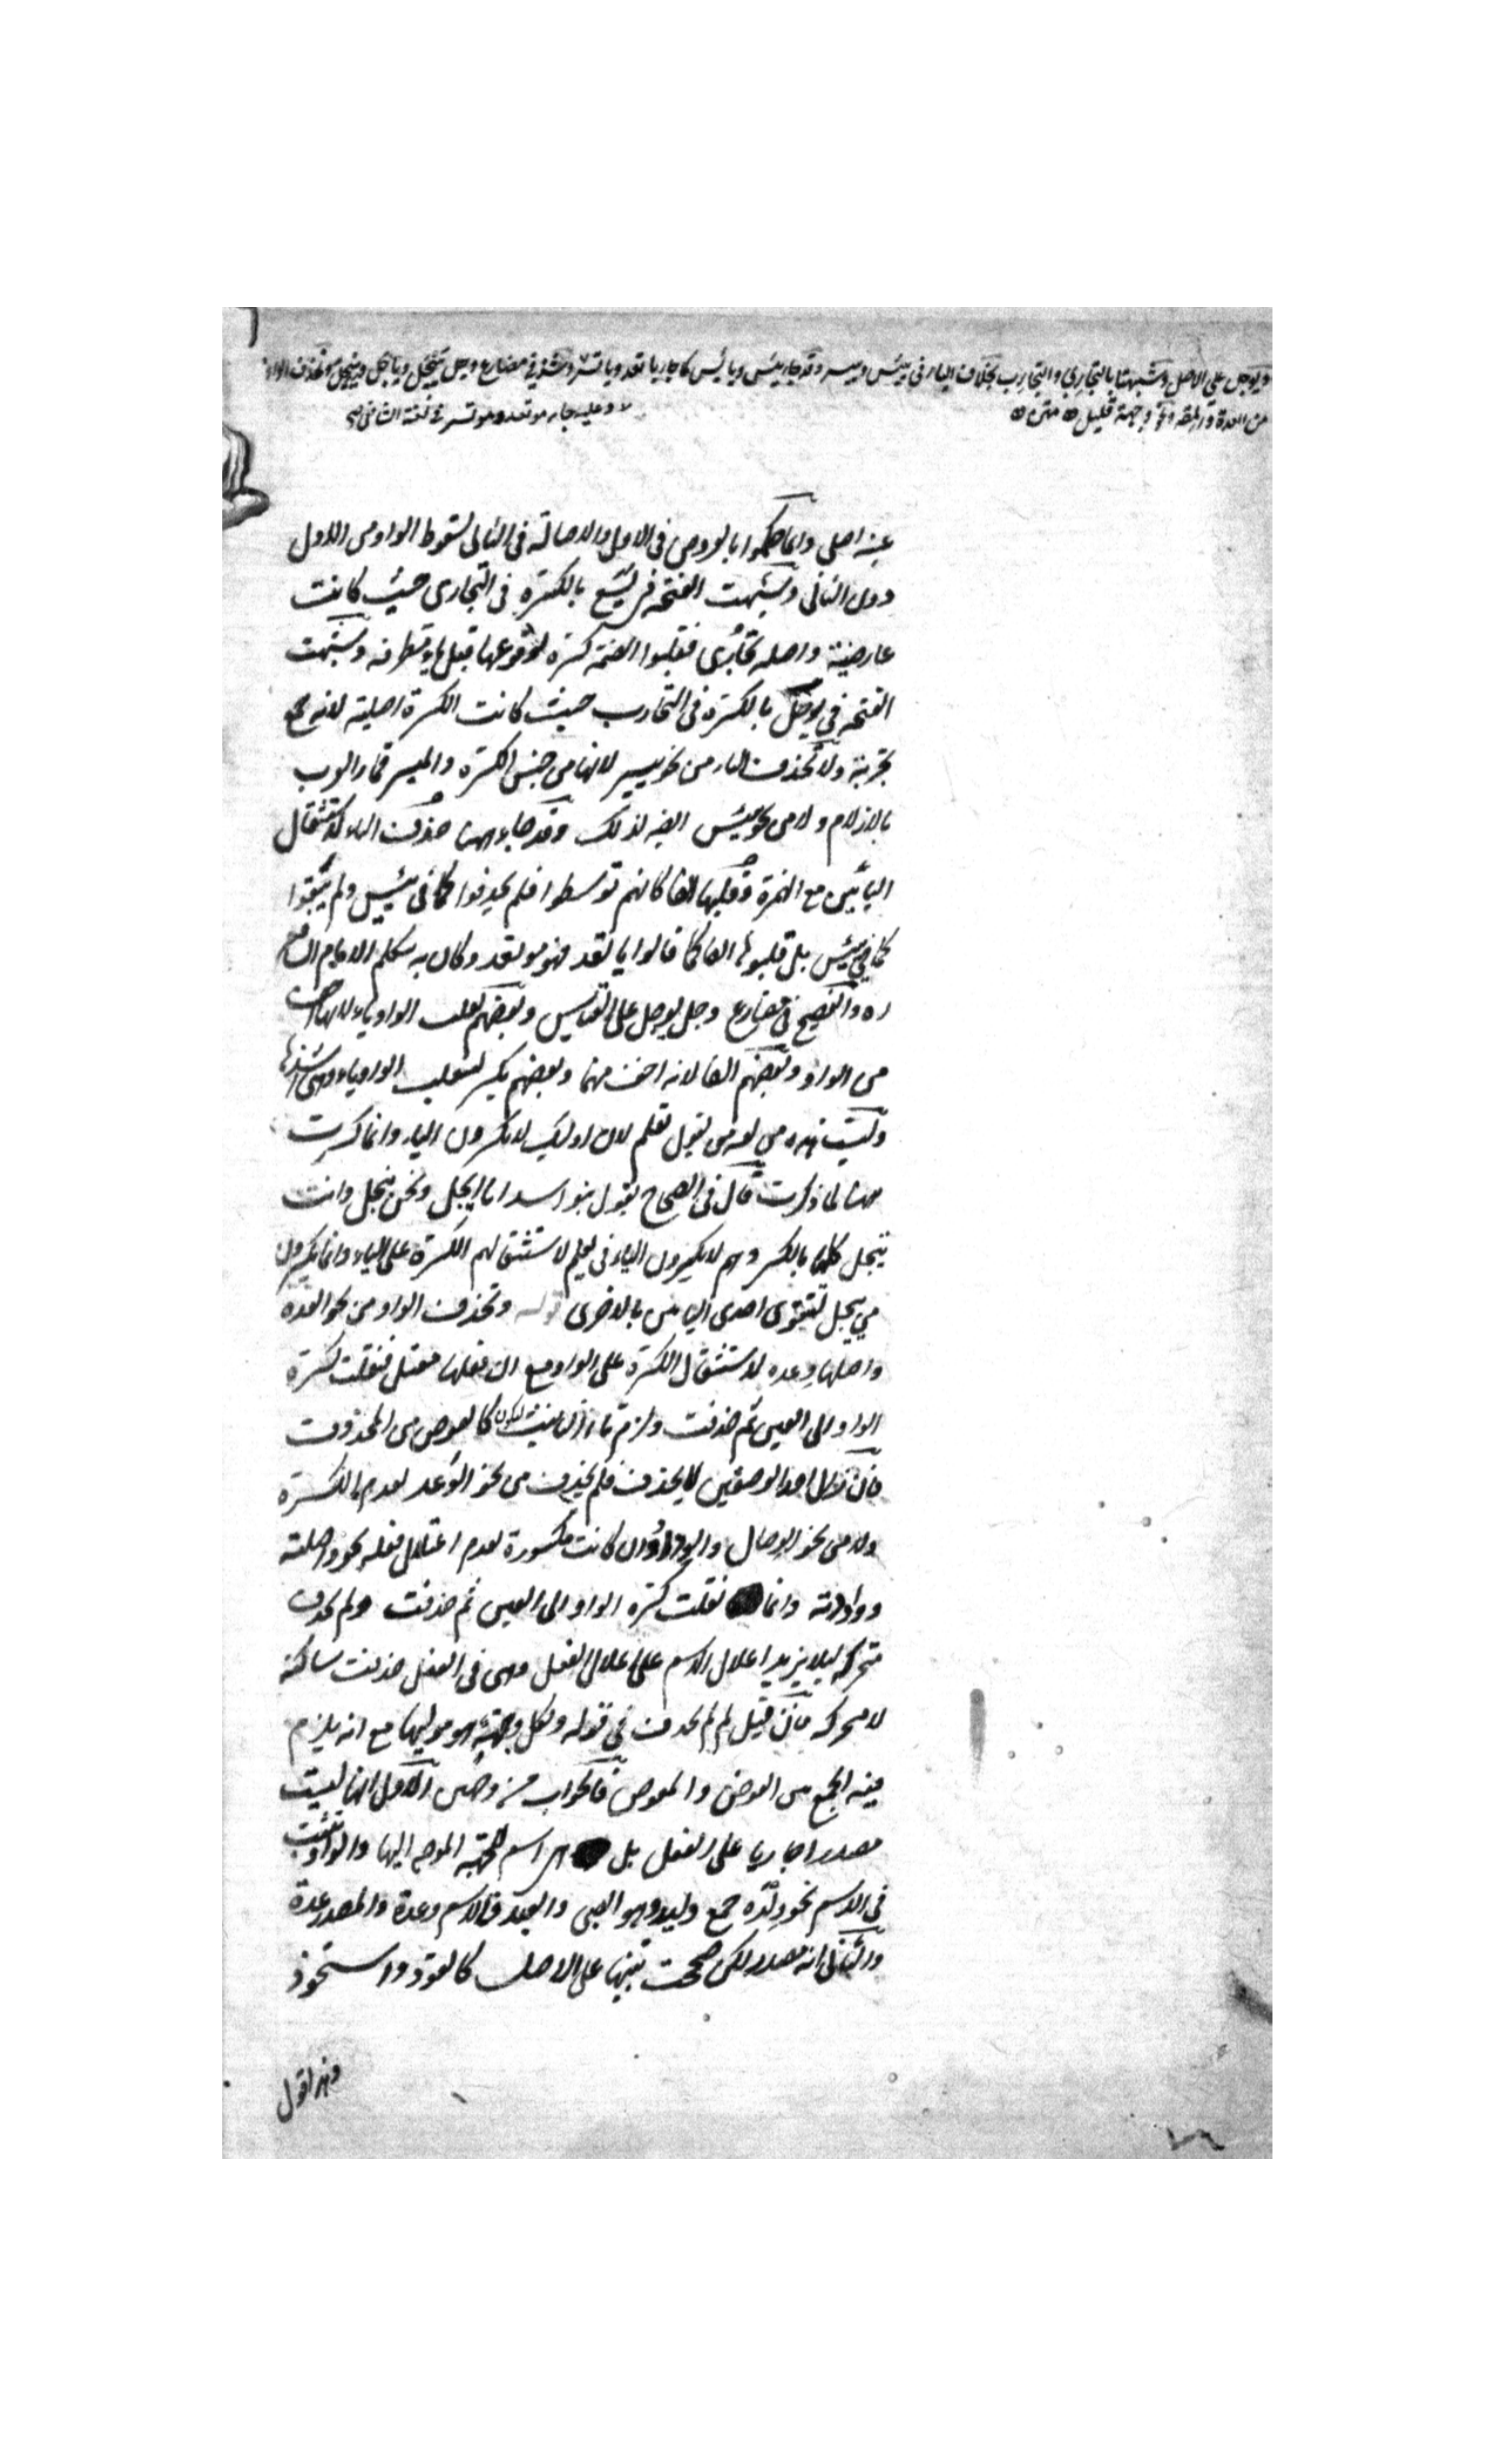 ويوجل على الاصل وشبهتا بالتجاري والتجارب بخلاف الياء في ييئس وييسر وقد جاء يئس ويائس كما جاء ياتعد وياتسر وشذ في مضارع وجل ييجل وياجل وييجل وتحذف الواو
من العدة والمقة ونحو وجهة قليل متن
وعليه جاء موتعد وموتسر في لغة الشافعي
عينه اصلي وانما حكموا بالعروض في الاول والاصالة في الثاني لسقوط الواو من الاول
دون الثاني وشبهت الفتحة في يسع بالكسرة في التجاري حيث كانت
عارضية واصله تجارُي فقلبوا الضمة كسرة لوقوعها قبل ياء متطرفة وشبهت
الفتحة في يوجل بالكسرة في التجارب حيث كانت الكسرة اصلية لانه جمع
تجربة ولا تحذف الياء من نحو ييسر لانها من جنس الكسرة والميسر قمار العرب
بالازلام ولا من نحو ييئس ايضا لذلك وقد جاء ههنا حذف الياء لاستثقال
اليائين مع الهمزة وقلبها الفا كانهم توسطوا فلم يحذفوا كما في يئس ولم يبقوا
كما في ييئس بل قلبوها الفا كما قالوا ياتعد فهو موتعد وكان به يتكلم الامام الشافعي
ره والفصيح في مضارع وجل يوجل على القياس وبعضهم يقلب الواو ياء لانها اخف
من الواو وبعضهم الفا لانه اخف منهما وبعضهم يكسر لتنقلب الواو ياء وهي اشذها
وليست هذه من لغة من يقول تعلم لان اولئك لا يكسرون الياء وانما كسرت
ههنا لما ذكرت قال في الصحاح يقول بنو اسد انا ايجل ونحن نيجل وانت
تيجل كلها بالكسر وهم لا يكسرون الياء في يعلم لاستثقالهم الكسرة على الياء وانما يكسرون
في ييجل لتتقوى احدى اليائين بالاخرى قوله وتحذف الواو من نحو العدة
واصلها وعده لاستثقال الكسرة على الواو مع ان فعلها معتل فنقلت كسرة
الواو الى العين ثم حذفت ولزم تاء التانيث ليكون كالعوض من المحذوف
فان زال احد الوصفين لا يحذف فلم يحذف من نحو الوَعد لعدم الكسرة
ولا من نحو الوصال والوداد وان كانت مكسورة لعدم اعتلال فعله نحو واصلته
وواددته وانما نقلت كسرة الواو الى العين ثم حذفت ولم تحذف
متحركة لئلا يزيد اعلال الاسم على اعلال الفعل وهي في الفعل حذفت ساكنة
لا متحركة فان قيل لم لم تحذف في قوله ولكل وجهة هو موليها مع انه يلزم
فيه الجمع بين العوض والمعوض فالجواب من وجهين الاول انها ليست
مصدرا جاريا على الفعل بل هي اسم للجهة الموجه اليها والواو تثبت
في الاسم نحو ولدة جمع وليد وهو الصبي والعبد فالاسم وعدة والمصدر عدة
والثاني انه مصدر لكن صحت تنبيها على الاصل كالقود واستحوذ
وهذا قول